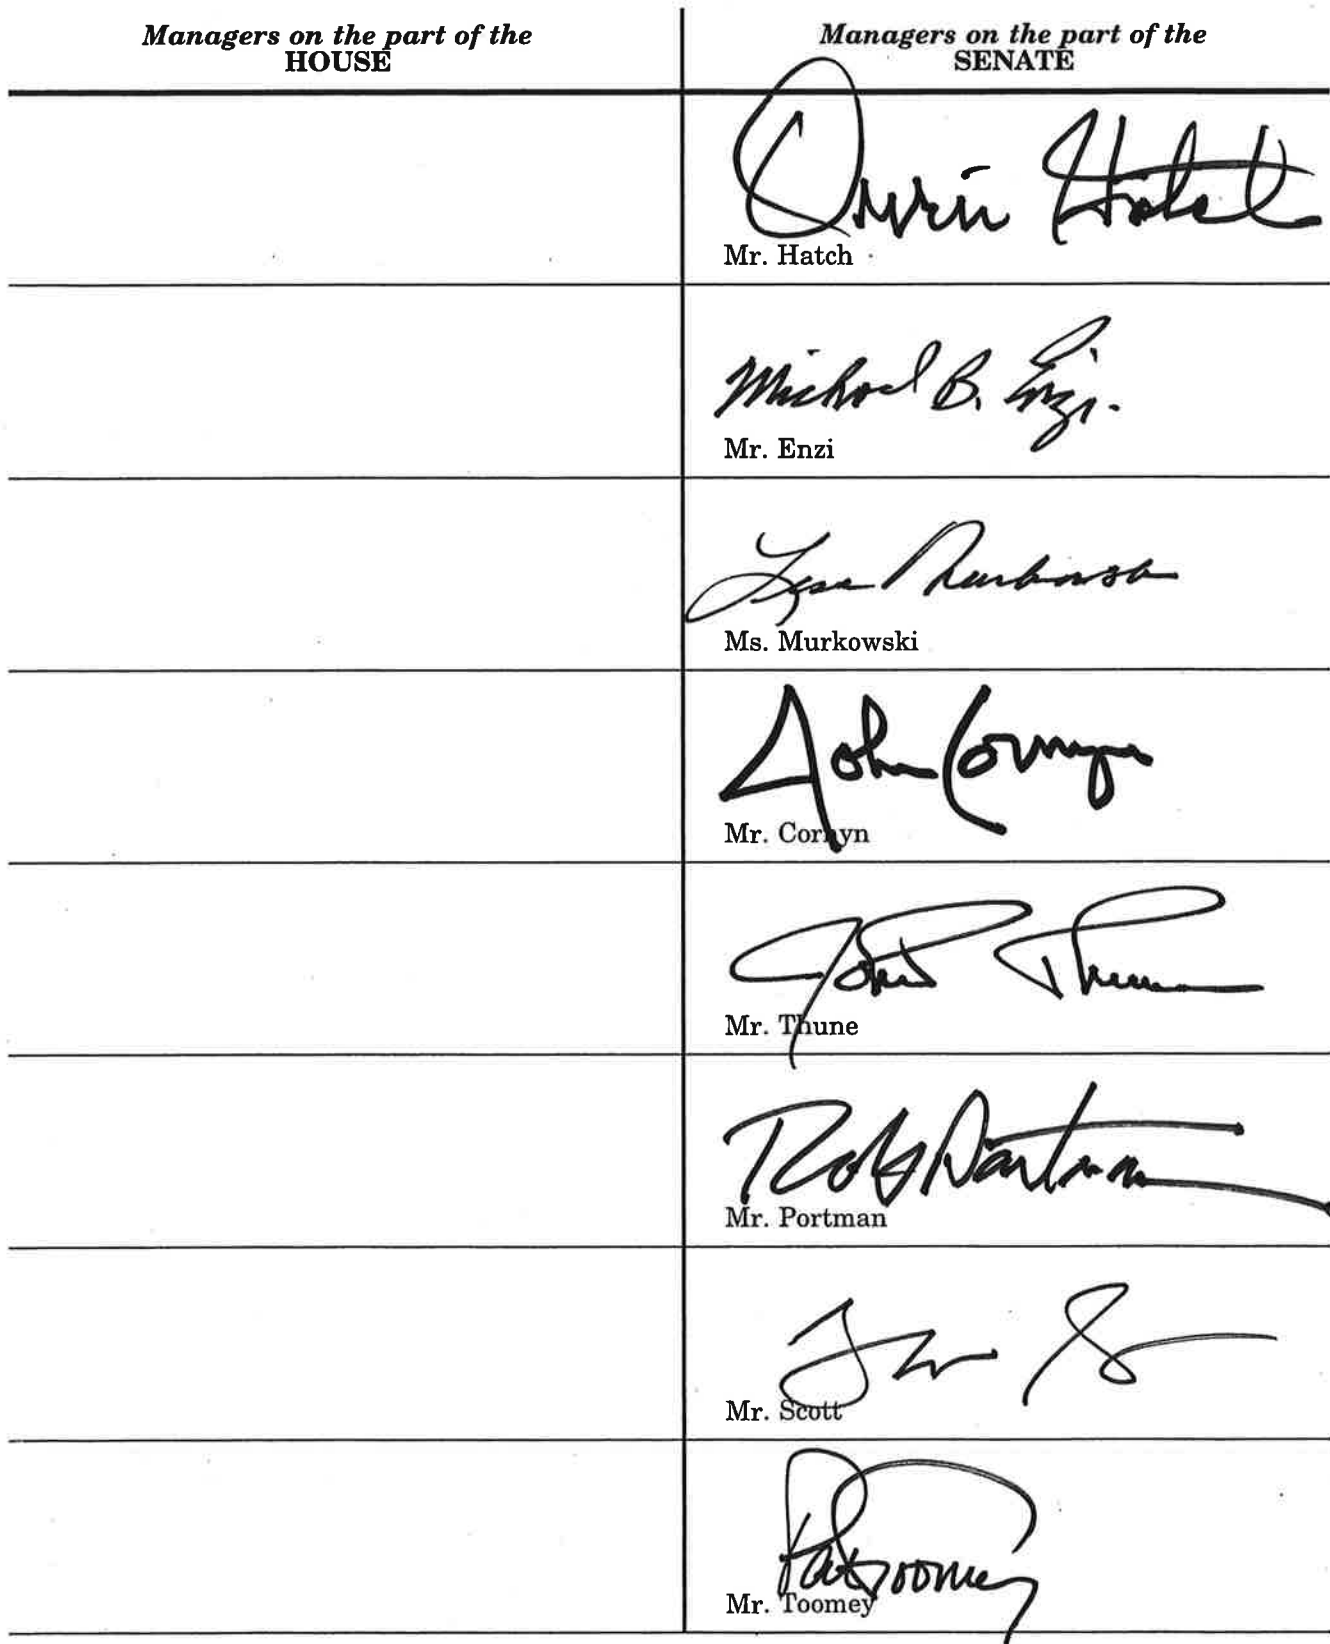 Managers on the part of the
HOUSE
Managers on the part of the
SENATE
Orrin Hatch
Mr. Hatch
Michael B. Enzi
Mr. Enzi
Lisa Murkowski
Ms. Murkowski
John Cornyn
Mr. Cornyn
John Thune
Mr. Thune
Rob Portman
Mr. Portman
Tim S
Mr. Scott
Pat Toomey
Mr. Toomey